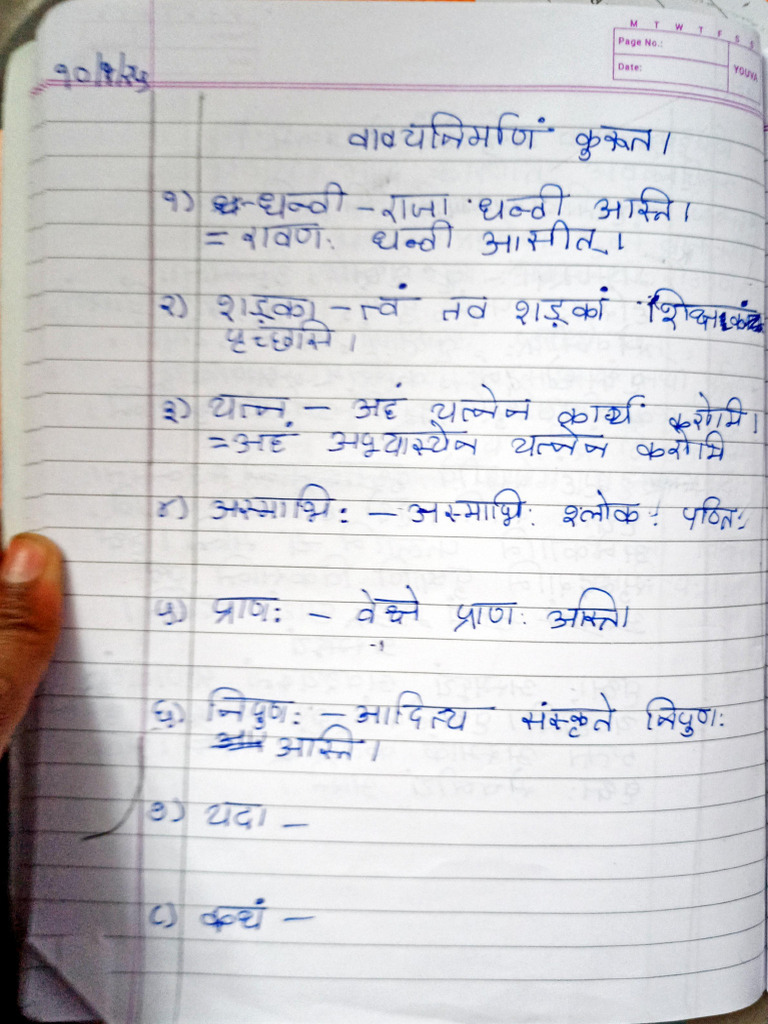 M T W T F S S
Page No.:
Date:
YOUVA
वाक्यनिर्माणं कुरूत।
१) धन्वी - राजा धन्वी अस्ति।
= रावणः धन्वी आसीत्।
२) शङ्का - त्वं तव शङ्कां शिक्षकं
पृच्छसि।
३) यत्न - अहं यत्नेन कार्यं करोमि।
=अहं यत्नेन करोमि
४) अस्माभिः - अस्माभिः श्लोकः पठितः
५) प्राणः - प्राणः अस्ति।
६) निपुणः - आदित्य संस्कृते निपुणः
अस्ति।
७) यदा -
८) कथं -